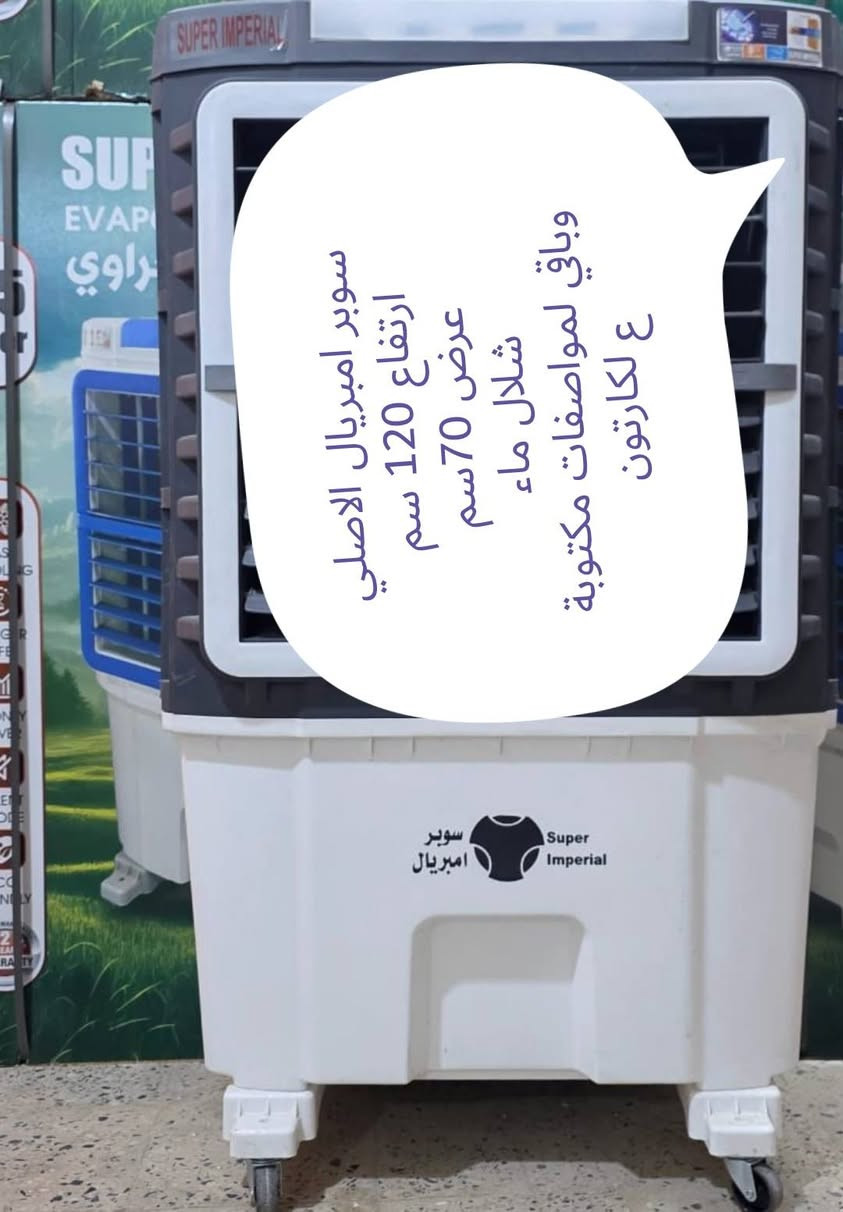 SUPER IMPERIAL
SUP
EVAP
سوبر امبريال الاصلي
ارتفاع 120 سم
عرض 70سم
شلال ماء
وباقي لمواصفات مكتوبة
ع لكارتون
سوبر
امبريال
Super
Imperial